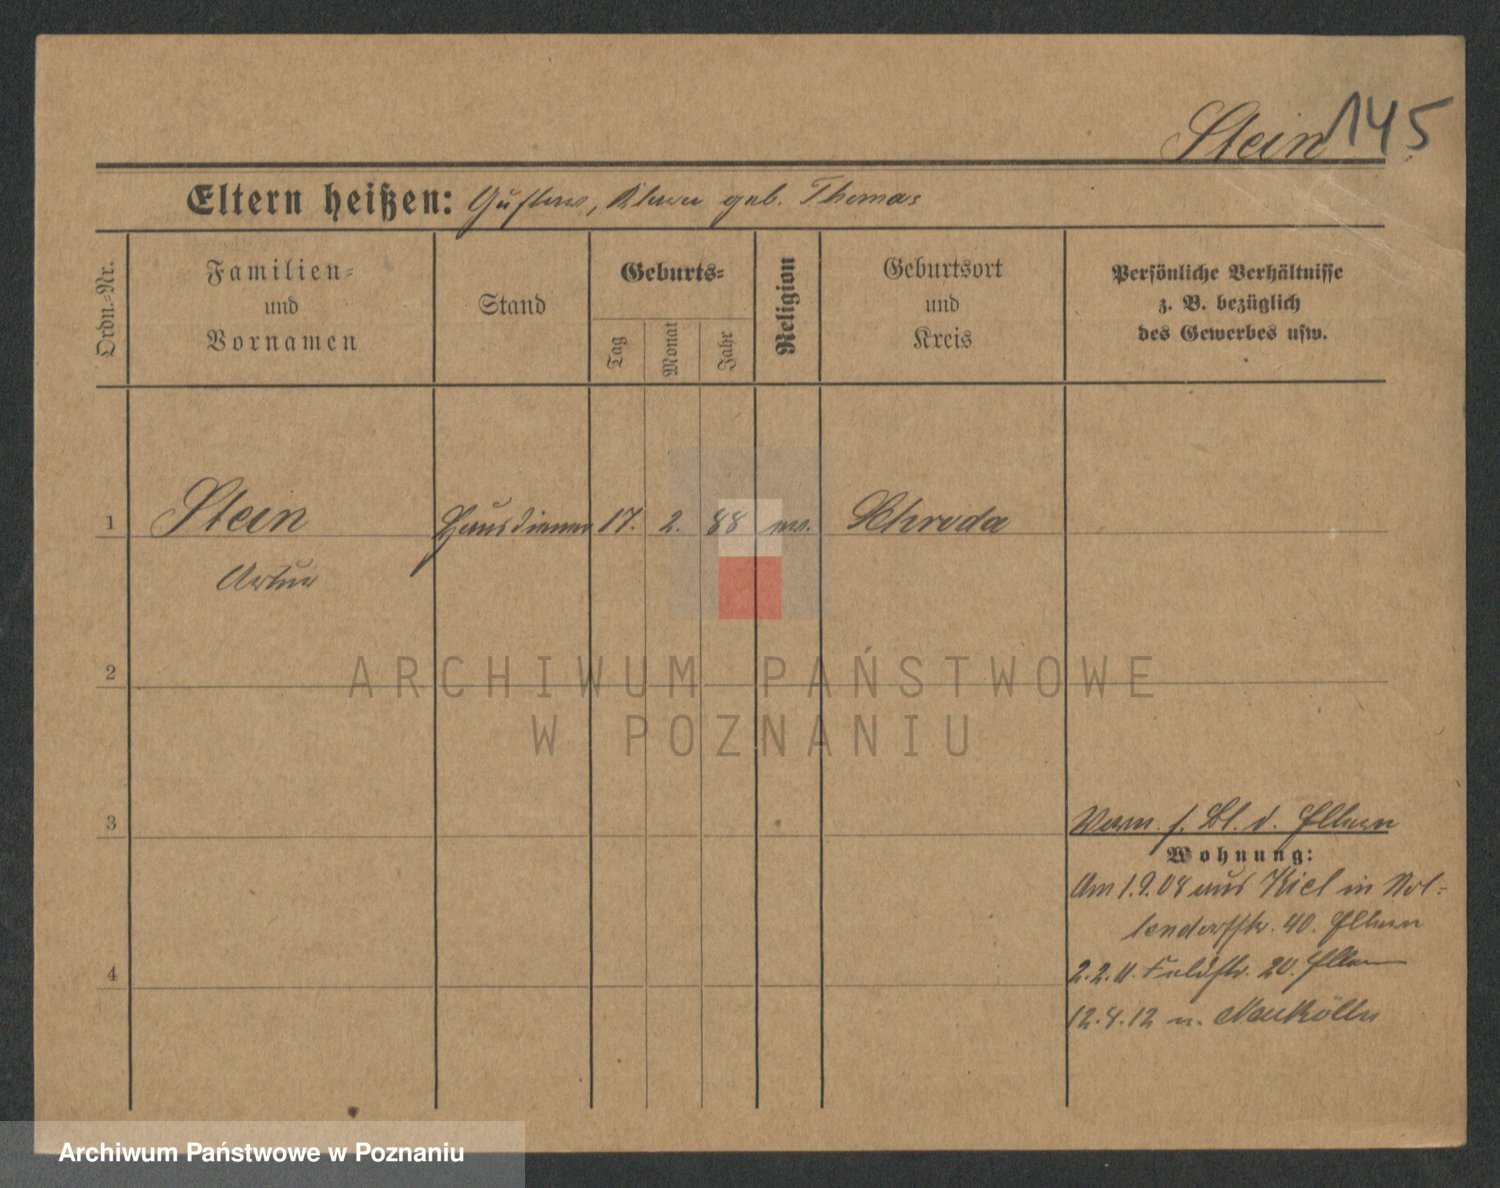 Stein 145
Eltern heißen: Gustav, geb. Thomas
Ordn.=Nr.
Familien=
und
Vornamen
Stand
Geburts=
Tag
Monat
Jahr
Religion
Geburtsort
und
Kreis
Persönliche Verhältnisse
z. B. bezüglich
des Gewerbes usw.
1 Stein Hausdiener 17. 2. 88 ev. Schroda
Artur
2
ARCHIWUM PAŃSTWOWE
W POZNANIU
3
Vorm. s. Bl. d. Eltern
Wohnung:
Am 1.9.08 aus Kiel in Nol=
lendorfstr. 40. Eltern
4
2.2.11. Feldstr. 20. Eltern
12.4.12 n. Neukölln
Archiwum Państwowe w Poznaniu